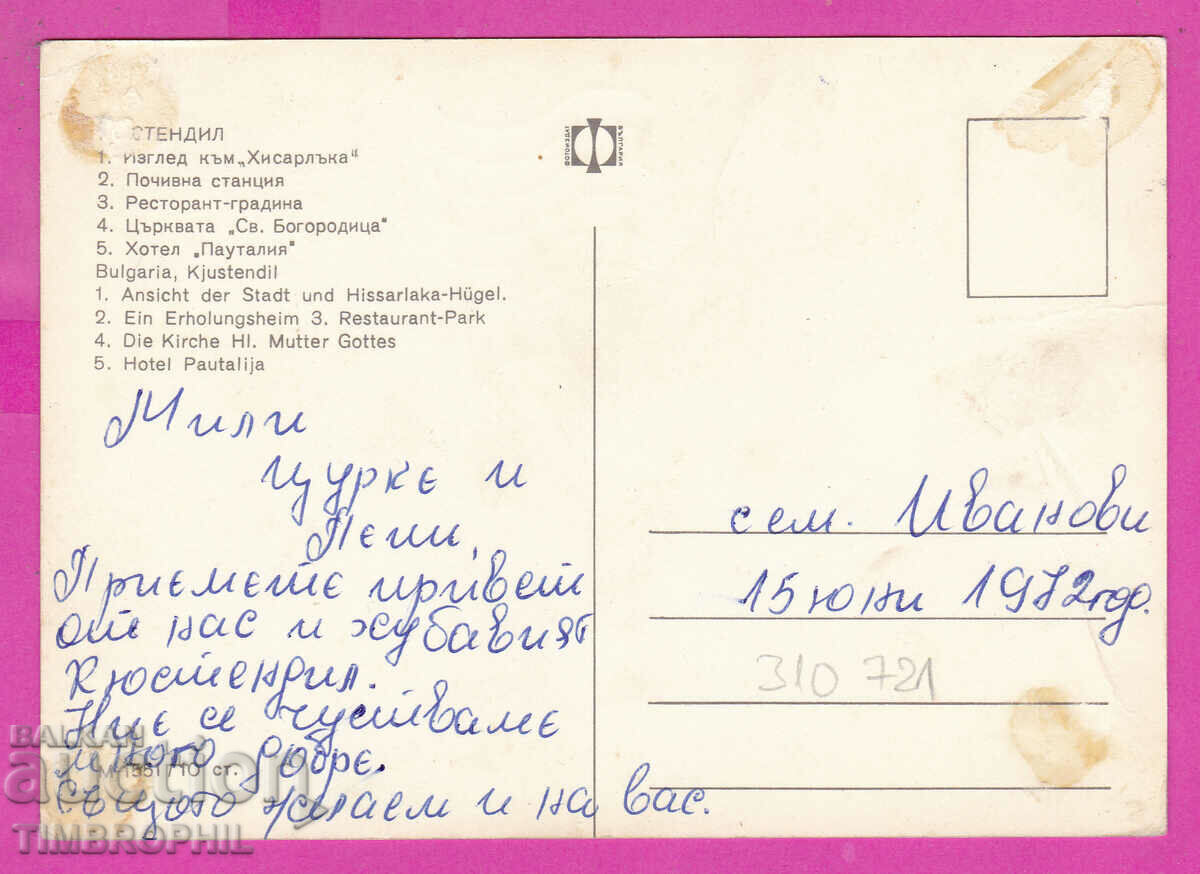 СТЕНДИЛ
1. Изглед към „Хисарлъка“
2. Почивна станция
3. Ресторант-градина
4. Църквата „Св. Богородица“
5. Хотел „Пауталия“
Bulgaria, Kjustendil
1. Ansicht der Stadt und Hissarlaka-Hügel.
2. Ein Erholungsheim 3. Restaurant-Park
4. Die Kirche Hl. Mutter Gottes
5. Hotel Pautalija
ФОТОИЗДАТ
БЪЛГАРИЯ
Мили
Цурке и
Пепи,
Приемете привет
от нас и хубавият
Кюстендил.
Ние се чустваме
много добре.
Същото желаем и на вас.
М-1551/10 ст.
сем. Иванови
15 юни 1972 год.
310 721
BALKAN
auction
TIMBROPHIL